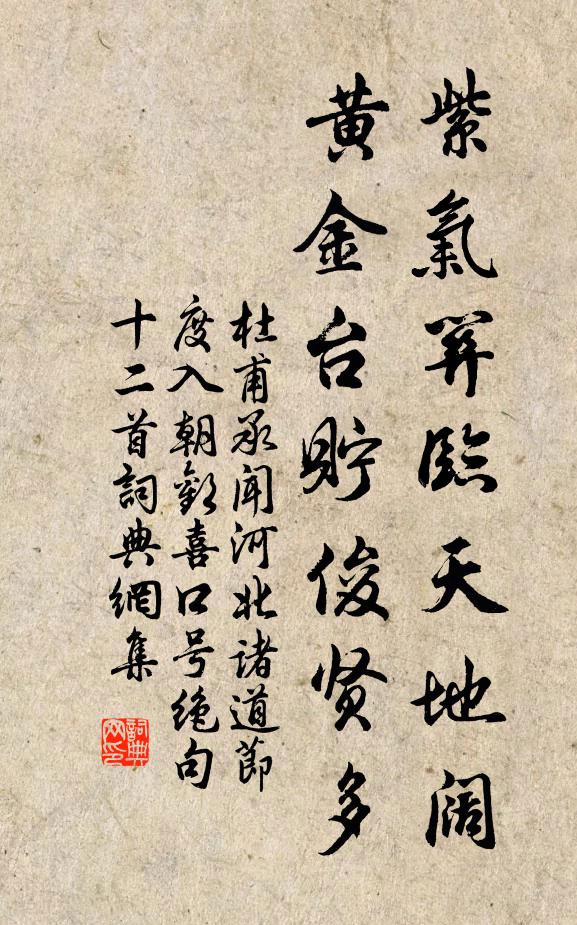 紫氣関臨天地阔
黄金台貯俊贤多
杜甫承聞河北諸道節
度入朝歡喜口号絶句
十二首詞典網集
詞典网印